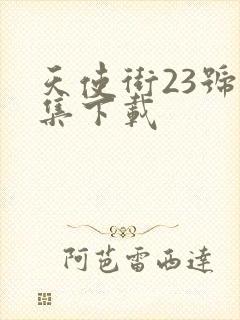 天使街23號
集下載
阿芭雷西達